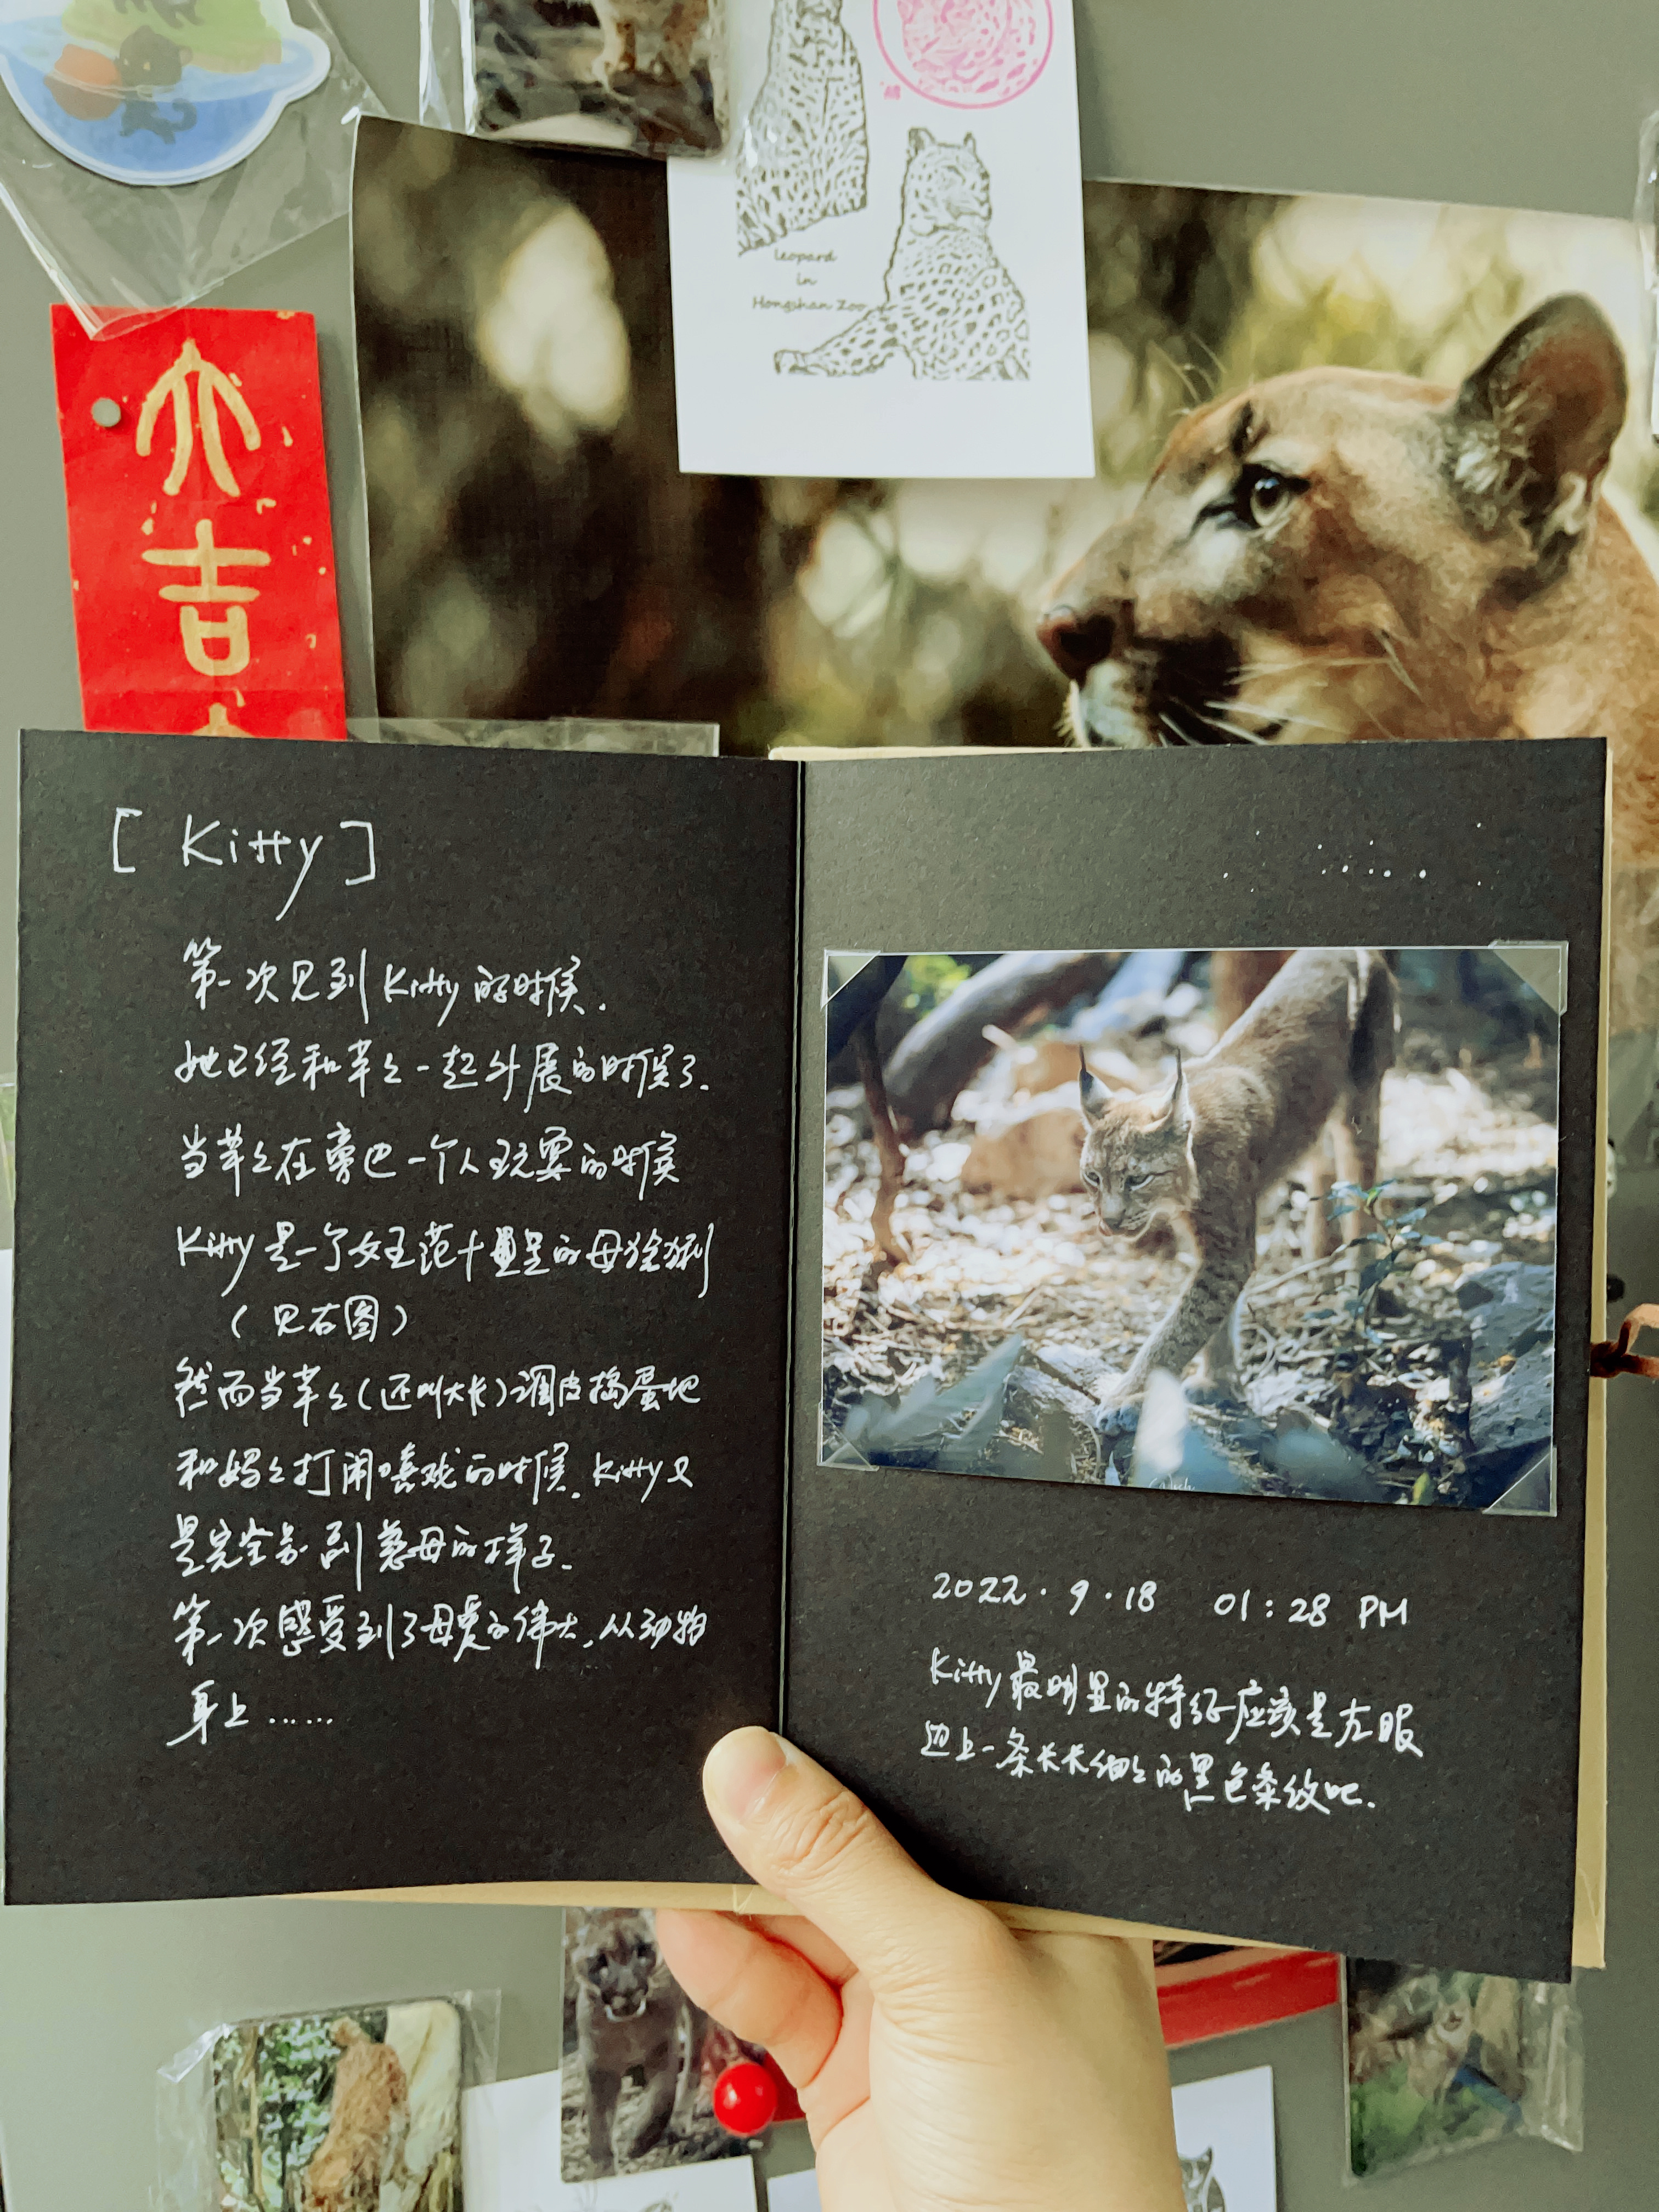 leopard
in
Hongshan Zoo
大
吉
[ Kitty ]
第一次见到Kitty的时候.
她已经和芊々一起外展的时候了.
当芊々在旁边一个人玩耍的时候
Kitty是一个女王范十足的母猞猁
(见右图)
然而当芊々(还叫大长)调皮捣蛋地
和妈々打闹嬉戏的时候. Kitty又
是完全另一副慈母的样子.
第一次感受到了母爱的伟大, 从动物
身上……
2022.9.18 01:28 PM
Kitty最明显的特征应该是左眼
边上一条长长细々的黑色条纹吧.